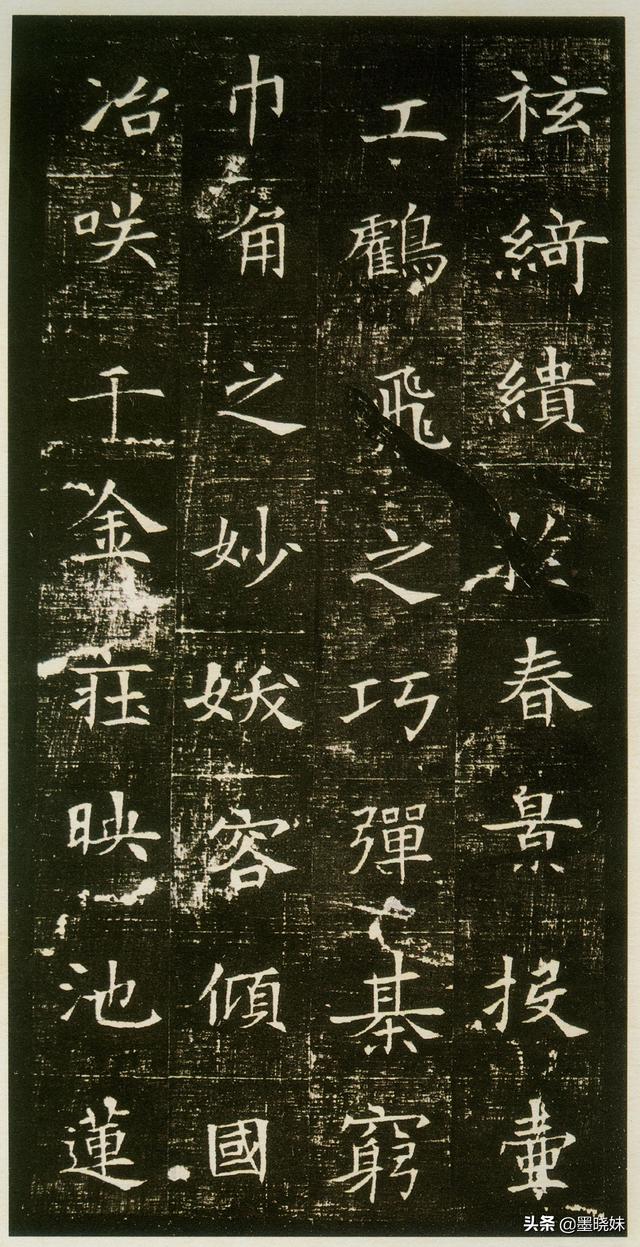 袨綺繢於春景投壷
工鸖飛之巧彈棊窮
巾角之妙娥容傾國
冶咲千金莊映池蓮
头条 @墨晓妹